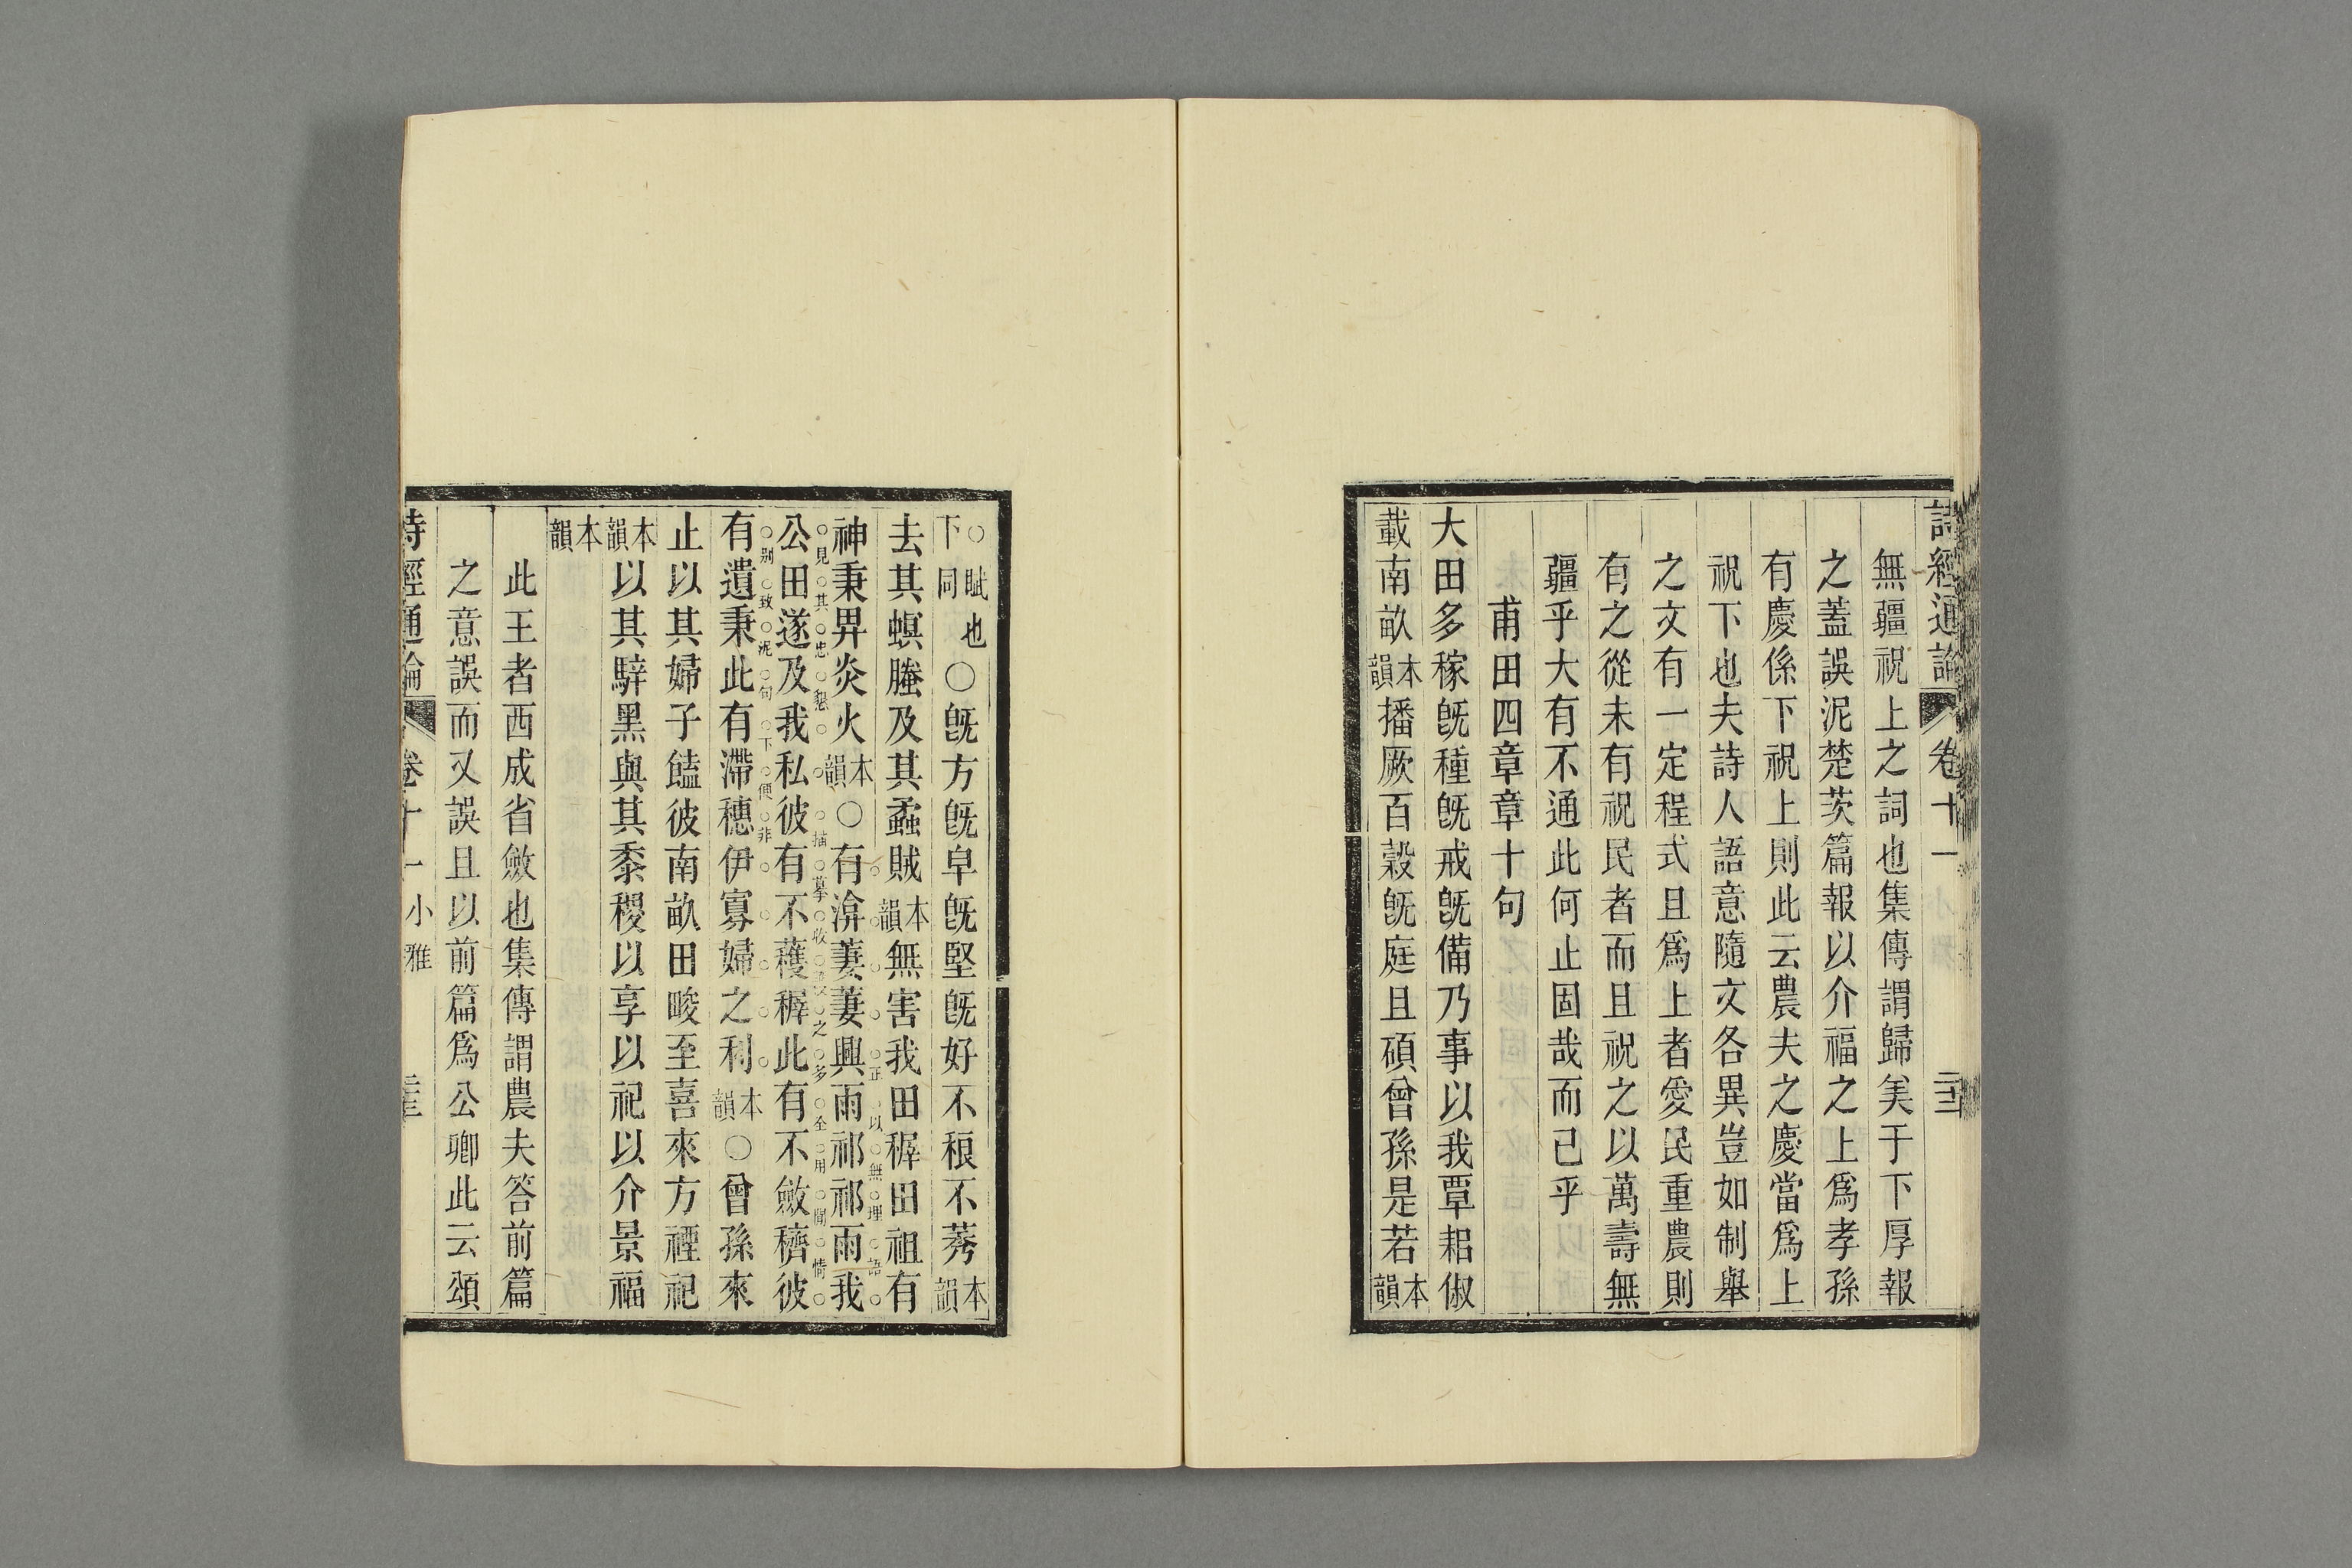 詩經通論 卷十一 二十二
無疆祝上之詞也集傳謂歸美于下厚報
之蓋誤泥楚茨篇報以介福之上為孝孫
有慶係下祝上則此云農夫之慶當為上
祝下也夫詩人語意隨文各異豈如制舉
之文有一定程式且為上者愛民重農則
有之從未有祝民者而且祝之以萬壽無
疆乎大有不通此何止固哉而已乎
甫田四章章十句
大田多稼旣種旣戒旣備乃事以我覃耜俶
載南畝本韻播厥百穀旣庭且碩曾孫是若本韻
○賦也下同○旣方旣皁旣堅旣好不稂不莠本韻
去其螟螣及其蟊賊本韻無害我田穉田祖有
正以無理語
神秉畀炎火本韻○有渰萋萋興雨祁祁雨我
見其忠懇 描摹收穫之多全用閒情
公田遂及我私彼有不穫穉此有不斂穧彼
別致泥句下便非
有遺秉此有滯穗伊寡婦之利本韻○曾孫來
止以其婦子饁彼南畝田畯至喜來方禋祀
本韻以其騂黑與其黍稷以享以祀以介景福
本韻
此王者西成省斂也集傳謂農夫答前篇
之意誤而又誤且以前篇為公卿此云頌
詩經通論 卷十一 小雅